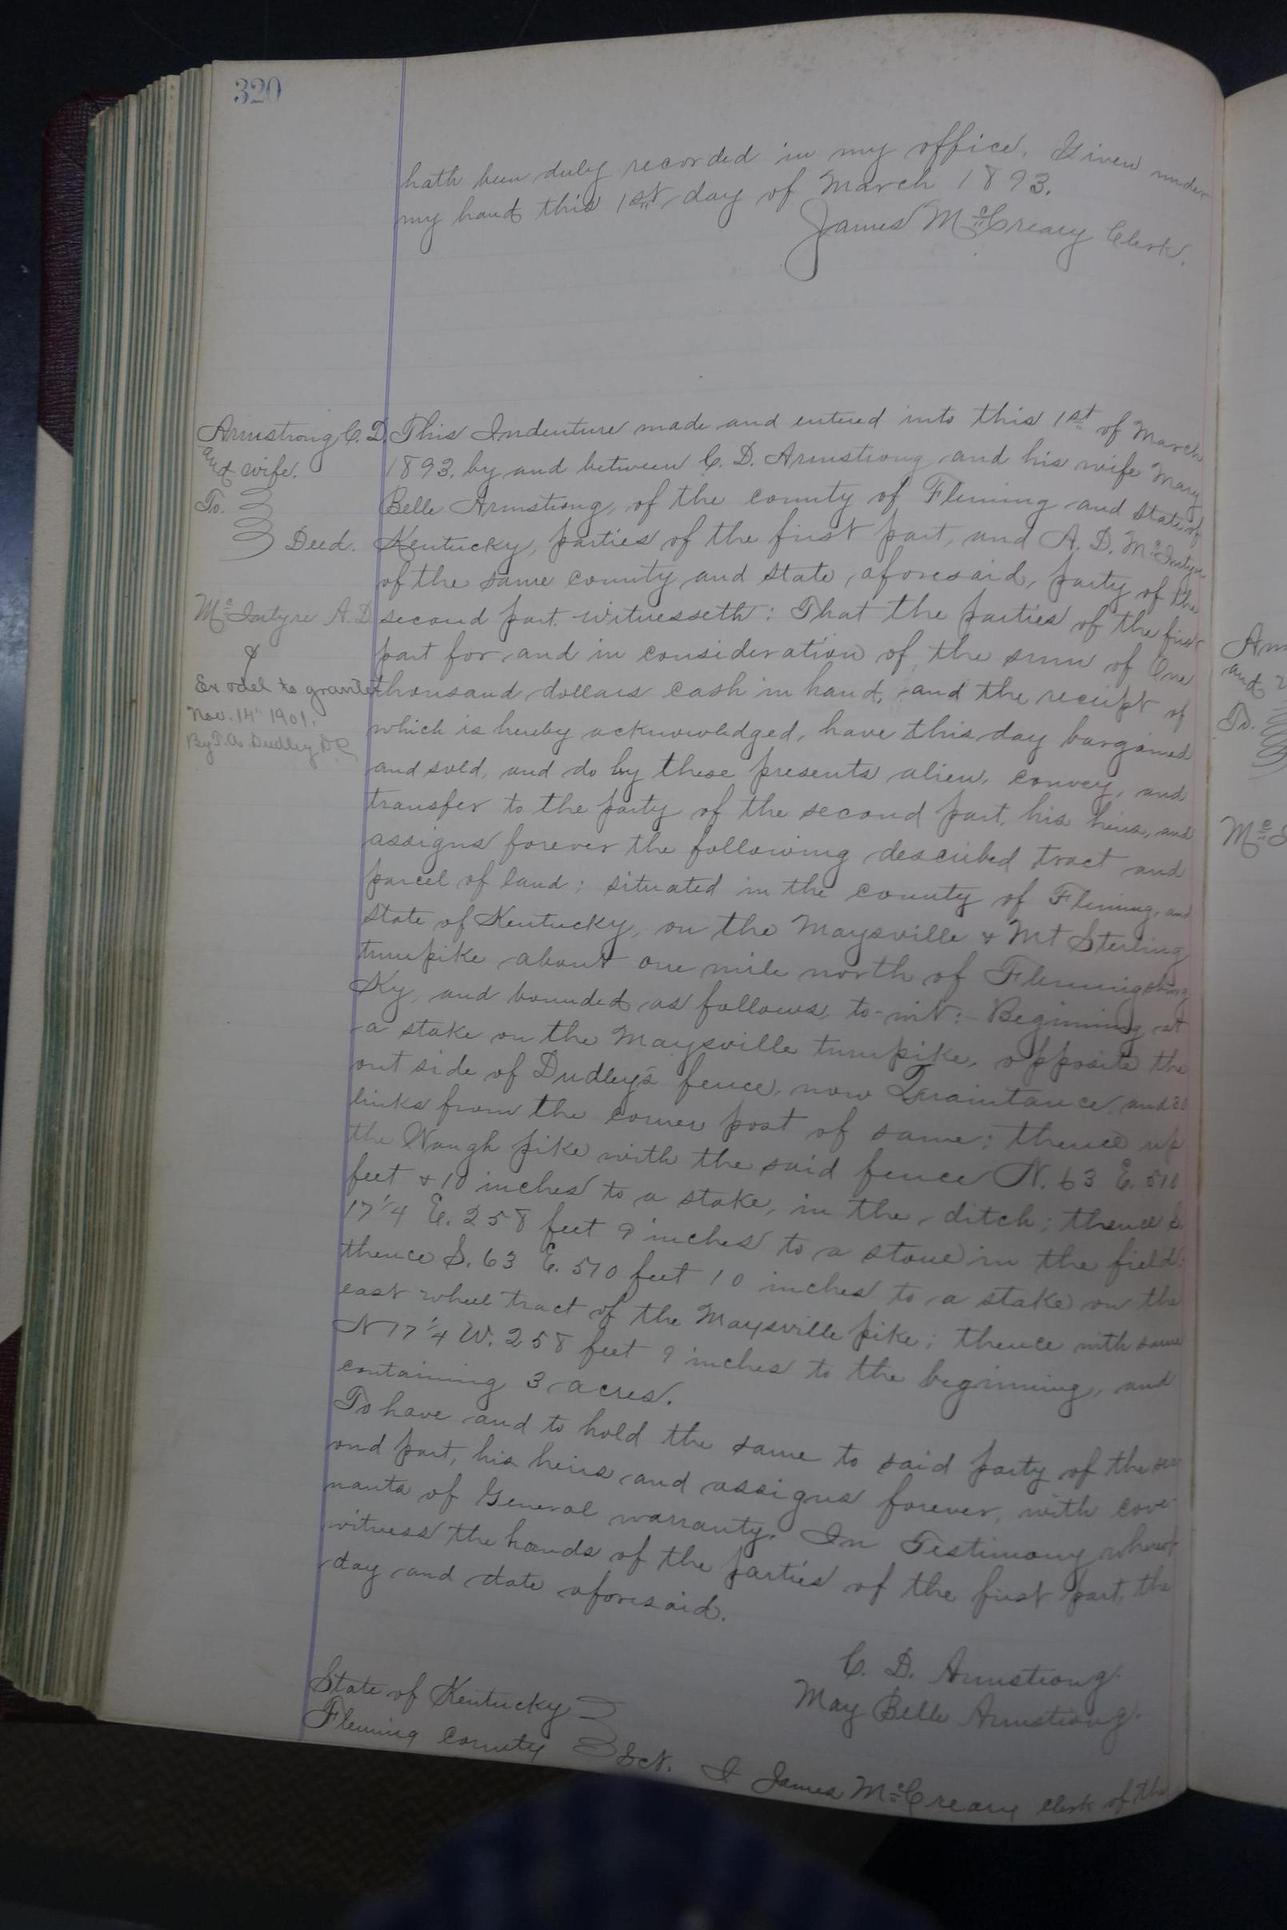 320
hath been duly recorded in my office. Given under
my hand this 1st day of March 1893.
James McCreary Clerk.
Armstrong C. D.
and wife.
To.
Deed.
McIntyre A. D.
Ex & del to grantee
Nov. 14" 1901.
By Dudley D.C.
This Indenture made and entered into this 1st of March
1893, by and between C. D. Armstrong and his wife Mary
Belle Armstrong, of the county of Fleming and State of
Kentucky, parties of the first part, and A. D. McIntyre
of the same county and state, aforesaid, party of the
second part. Witnesseth: That the parties of the first
part for and in consideration of the sum of One
thousand dollars cash in hand, and the receipt of
which is hereby acknowledged, have this day bargained
and sold, and do by these presents alien, convey, and
transfer to the party of the second part, his heirs, and
assigns forever the following described tract and
parcel of land; situated in the county of Fleming, and
State of Kentucky, on the Maysville & Mt Sterling
turnpike about one mile north of Flemingsburg
Ky, and bounded as follows, to-wit:- Beginning at
a stake on the Maysville turnpike, opposite the
out side of Dudley's fence, now Quaintance, and 20
links from the corner post of same; thence up
the Waugh pike with the said fence N. 63 E. 510
feet & 10 inches to a stake, in the ditch; thence S.
17 1/4 E. 258 feet 9 inches to a stone in the field;
thence S. 63 E. 510 feet 10 inches to a stake on the
east wheel tract of the Maysville pike; thence with same
N 17 1/4 W. 258 feet 9 inches to the beginning, and
containing 3 acres.
To have and to hold the same to said party of the sec
ond part, his heirs and assigns forever, with cove-
nants of General warranty. In Testimony whereof
witness the hands of the parties of the first part, the
day and date aforesaid.
C. D. Armstrong.
May Belle Armstrong.
State of Kentucky
Fleming County
Sct. I James McCreary Clerk of the
Arm
and
To.
Mc